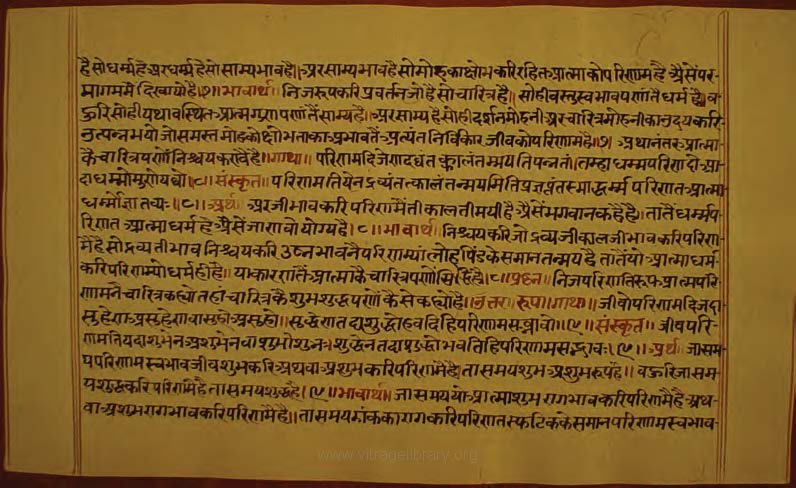 है सो धर्म्म है अर धर्म्म है सो साम्यभाव है॥ अर साम्यभाव है सो मोह का क्षोभ करि रहित आत्मा को परिणाम है अैसें पर-
मागम में दिखायो है।७। भावार्थ॥ निज रूप करि प्रवर्तन जो है सो चारित्र है॥ सो ही वस्तु स्वभावपणांतैं धर्म है।
सो ही यथावस्थित आत्मगुणपणांतैं साम्य है॥ अर साम्य है सो ही दर्शनमोहनी अर चारित्रमोहनी का उदय करि
उत्पन्न भयो जो समस्त मोह क्षोभ ताका अभावतैं अत्यंत निर्विकार जीव को परिणाम है।७। अथानंतर आत्मा
कै चारित्रपणौं निश्चय करावै है॥ गाथा॥ परिणमदि जेण दव्वं तक्कालं तम्मय त्ति पन्नतं। तम्हा धम्मपरिणदो आ-
दा धम्मो मुणेयव्वो।८। संस्कृत॥ परिणमति येन द्रव्यं तत्कालं तन्मयमिति प्रज्ञप्तं तस्माद्धर्म्म परिणत आत्मा
धर्म्मो ज्ञातव्यः॥८॥ अर्थ॥ अर जी भाव करि परिणमै ती काल तीमयी है अैसें भगवान कहै है॥ तातैं धर्म्म प-
रिणत आत्मा धर्म है अैसें जाणवो योग्य है।८। भावार्थ॥ निश्चय करि जो द्रव्य जी काल जी भाव करि परिण-
मै है सो द्रव्य ती भाव निश्चय करि उष्न भावनै परिणम्यां लोह पिंड के समान तन्मय है तातैं यो आत्मा धर्म
करि परिणम्यो धर्म ही है॥ या कारणतैं आत्मा कै चारित्रपणौं सिद्धि है।८। प्रश्न॥ निज परिणति रूप आत्मपरि-
णामनै चारित्र कह्यो तहां चारित्र कै शुभ शुद्धपणौं कैसे कह्यो है॥ उत्तर रूप॥ गाथा॥ जीवो परिणमदि जदा
सुहेण असुहेण वा सुहो असुहो॥ सुद्धेण तदा शुद्धो हवदि हि परिणाम सब्भावो॥९॥ संस्कृत॥ जीव परि-
णमति यदा शुभेन अशुभेन वा शुभो शुभः शुद्धेन तदा शुद्धो भवति हि परिणाम सद्भावः।९। अर्थ॥ जा सम-
य परिणाम स्वभाव जीव शुभ करि अथवा अशुभ करि परिणमै है॥ ता समय शुभ अशुभ रूप है॥ बऊरि जा सम-
य शुद्ध करि परिणमै है ता समय शुद्ध है।९॥ भावार्थ॥ जा समय यो आत्मा शुभ राग भाव करि परिणमै है अथ-
वा अशुभ राग भाव करि परिणमै है॥ ता समय राग करि परिणत स्फटिक के समान परिणाम स्वभाव-
www.vitragelibrary.org